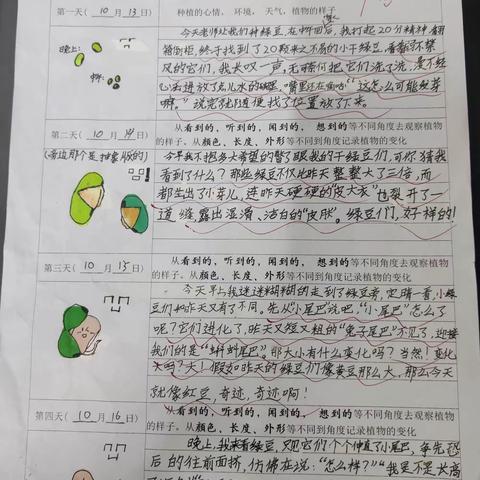 第一天( 10 月 13 日) 种植的心情、 环境、 天气,植物的样子
今天老师让我们种绿豆,在午间后,我打起20分精神,翻
晚上:
箱倒柜,终于找到了20颗来之不易的小干绿豆,看着弱不禁
风的它们,我长叹一声,无可奈何把它们洗了洗,漫不经
心去进放了点儿水的碗里,嘴里还在嘀咕:“这怎么可能发芽
嘛。”说完就随便找了位置放了下来。
第二天( 10 月 14 日) 从看到的、听到的、闻到的、 想到的等不同角度去观察植物
的样子。从颜色、长度、外形等不同到角度记录植物的变化
(旁边那个是抽象版的)
今早我不抱多大希望的瞥了眼我的干绿豆们,可你猜我
看到了什么?那些绿豆不仅比昨天整整大了三倍,而
都生出了小芽儿,连昨天硬硬的“皮大衣”也裂开了一
道缝,露出湿滑、洁白的“皮肤”。绿豆们,好样的!
第三天( 10 月 15 日) 从看到的、听到的、闻到的、 想到的等不同角度去观察植物
的样子。从颜色、长度、外形等不同到角度记录植物的变化
今天早上我迷迷糊糊的走到了绿豆旁,定睛一看,小绿
豆们和昨天又有了不同。先从“小尾巴”说吧,“小尾巴”怎么了
呢?它们进化了,昨天又短又粗的“兔子尾巴”不见了,迎接
我们的是“蝌蚪尾巴”。那大小有什么变化吗?当然!变化
大!假如昨天的绿豆们像黄豆那么大,那么今天
就像红豆,奇迹,奇迹啊!
第四天( 10 月 16 日) 从看到的、听到的、闻到的、 想到的等不同角度去观察植物
的样子。从颜色、长度、外形等不同到角度记录植物的变化
晚上,我来看绿豆,又见它们个个伸直了小尾巴,争先恐
后的往前面挤,仿佛在说:“怎么样?”“我是不是长高